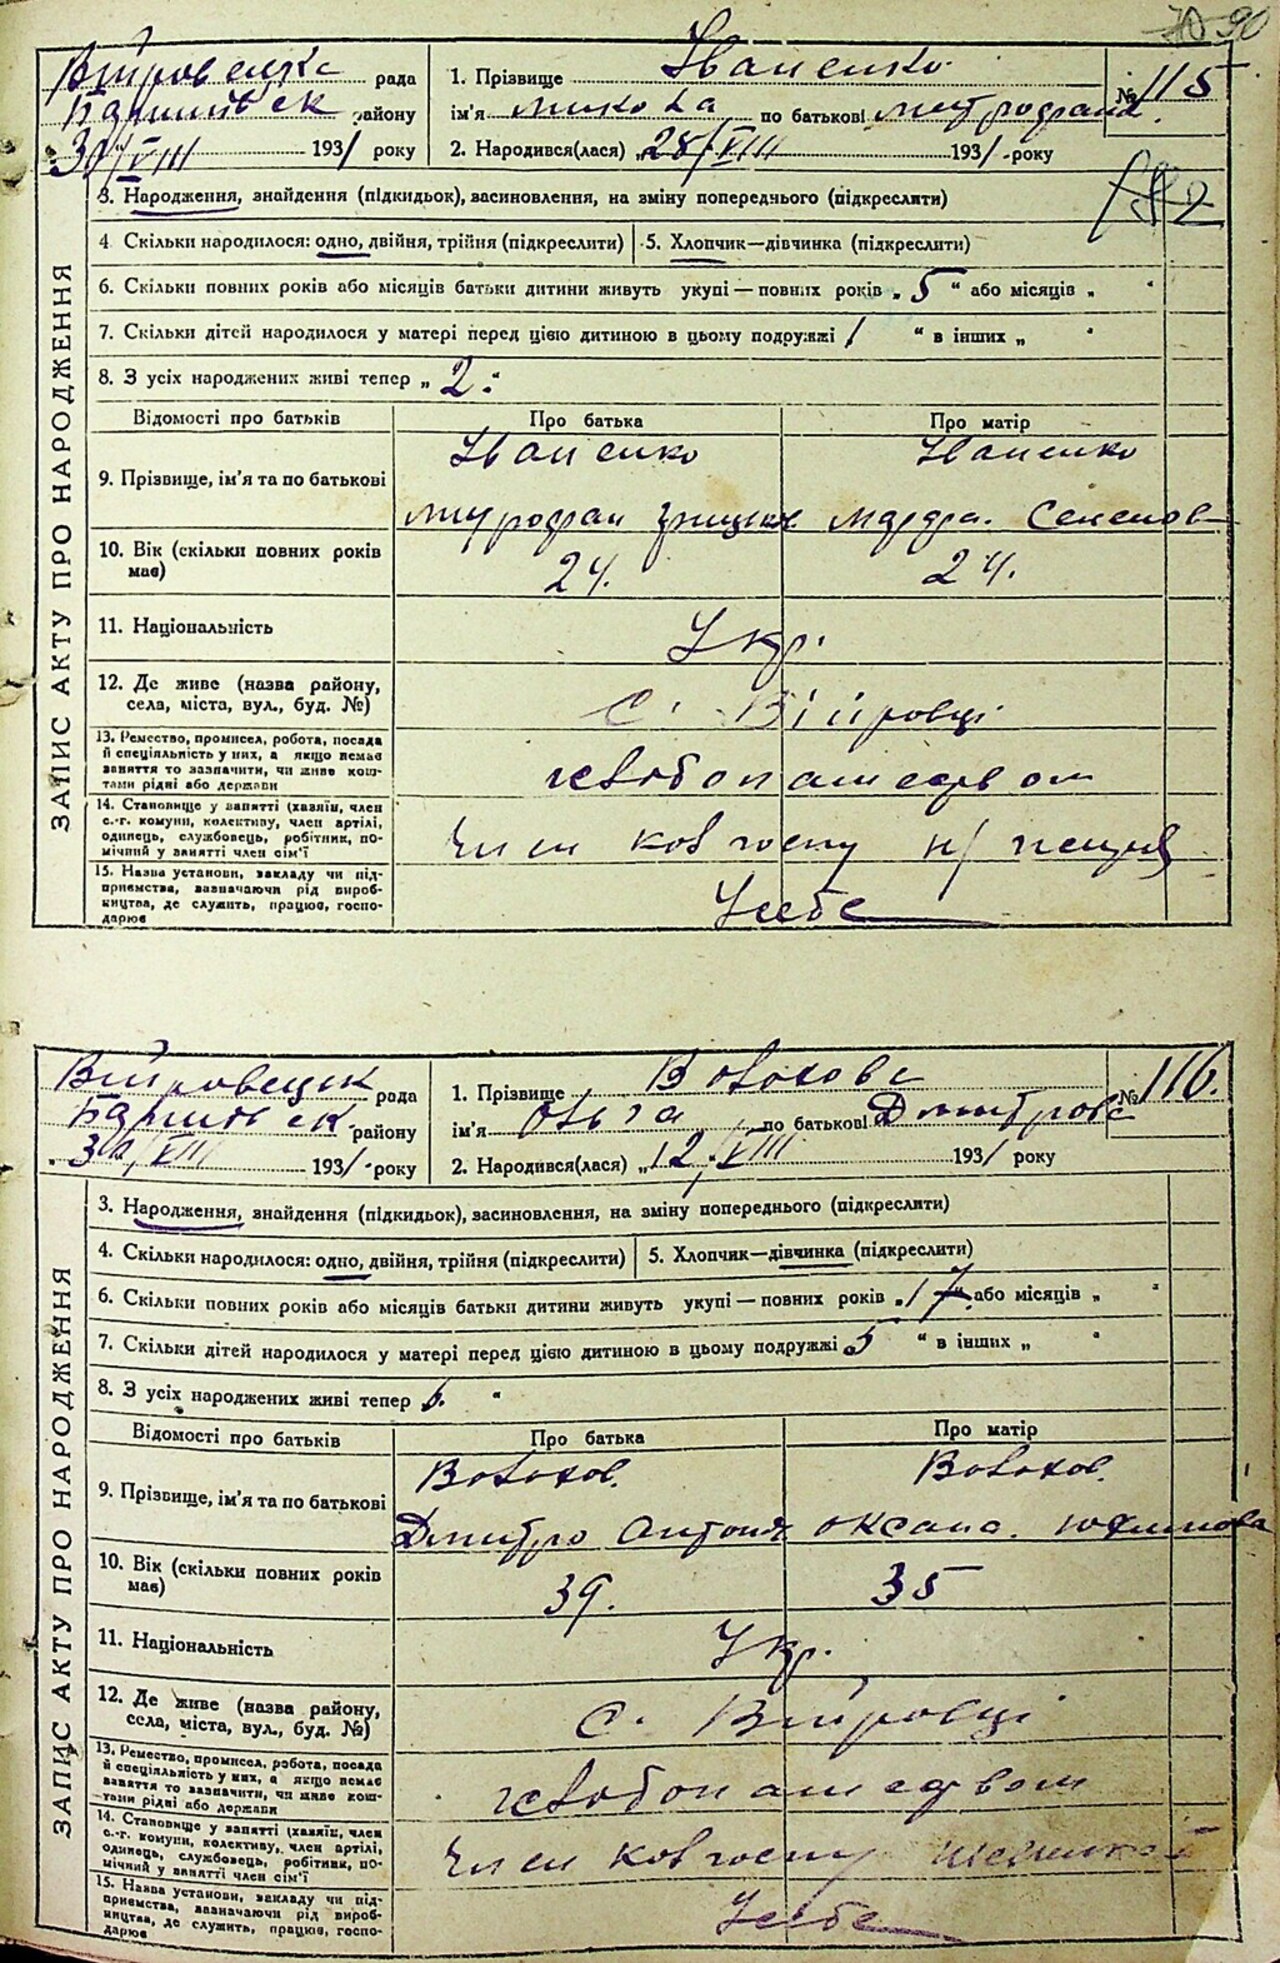 90
Війровецька рада
1. Прізвище Іваненко
№ 115
Баришівськ району
ім'я микола по батькові митрофана
30/VIII 1931 року
2. Народився(лася) „28/VIII 1931 року
3. Народження, знайдення (підкидьок), засиновлення, на зміну попереднього (підкреслити)
4 Скільки народилося: одно, двійня, трійня (підкреслити)
5. Хлопчик—дівчинка (підкреслити)
6. Скільки повних років або місяців батьки дитини живуть укупі — повних років „ 5 “ або місяців „ “
7. Скільки дітей народилося у матері перед цією дитиною в цьому подружжі 1 “ в інших „ “
8. З усіх народжених живі тепер „ 2 “
ЗАПИС АКТУ ПРО НАРОДЖЕННЯ
Відомості про батьків
Про батька
Про матір
9. Прізвище, ім'я та по батькові
Іваненко
Іваненко
митрофан
Семенов
10. Вік (скільки повних років
має)
24.
24.
11. Національність
Укр.
12. Де живе (назва району,
села, міста, вул., буд. №)
С. Війровці
13. Ремество, промисел, робота, посада
й спеціяльність у них, а якщо немає
заняття то зазначити, чи живе кош-
тами рідні або держави
хліборобством
14. Становище у занятті (хазяїн, член
с.-г. комуни, колективу, член артілі,
одинець, службовець, робітник, по-
мічний у занятті член сім'ї
Член колгоспу
15. Назва установи, закладу чи під-
приємства, зазначаючи рід вироб-
ництва, де служить, працює, госпо-
дарює
У себе
Війровецьк рада
1. Прізвище Волохова
№ 116.
Баришівськ району
ім'я Ольга по батькові Дмитрова
30/VIII 1931 року
2. Народився(лася) „12/VIII 1931 року
3. Народження, знайдення (підкидьок), засиновлення, на зміну попереднього (підкреслити)
4. Скільки народилося: одно, двійня, трійня (підкреслити)
5. Хлопчик—дівчинка (підкреслити)
6. Скільки повних років або місяців батьки дитини живуть укупі — повних років „ 17 “ або місяців „ “
7. Скільки дітей народилося у матері перед цією дитиною в цьому подружжі 5 “ в інших „ “
8. З усіх народжених живі тепер 6. “
ЗАПИС АКТУ ПРО НАРОДЖЕННЯ
Відомості про батьків
Про батька
Про матір
9. Прізвище, ім'я та по батькові
Волохов.
Волохов.
Дмитро Антонів
Оксана. Юхимова
10. Вік (скільки повних років
має)
39.
35
11. Національність
Укр.
12. Де живе (назва району,
села, міста, вул., буд. №)
С. Війровці
13. Ремество, промисел, робота, посада
й спеціяльність у них, а якщо немає
заняття то зазначити, чи живе кош-
тами рідні або держави
хліборобством
14. Становище у занятті (хазяїн, член
с.-г. комуни, колективу, член артілі,
одинець, службовець, робітник, по-
мічний у занятті член сім'ї
Член колгоспу
15. Назва установи, закладу чи під-
приємства, зазначаючи рід вироб-
ництва, де служить, працює, госпо-
дарює
У себе